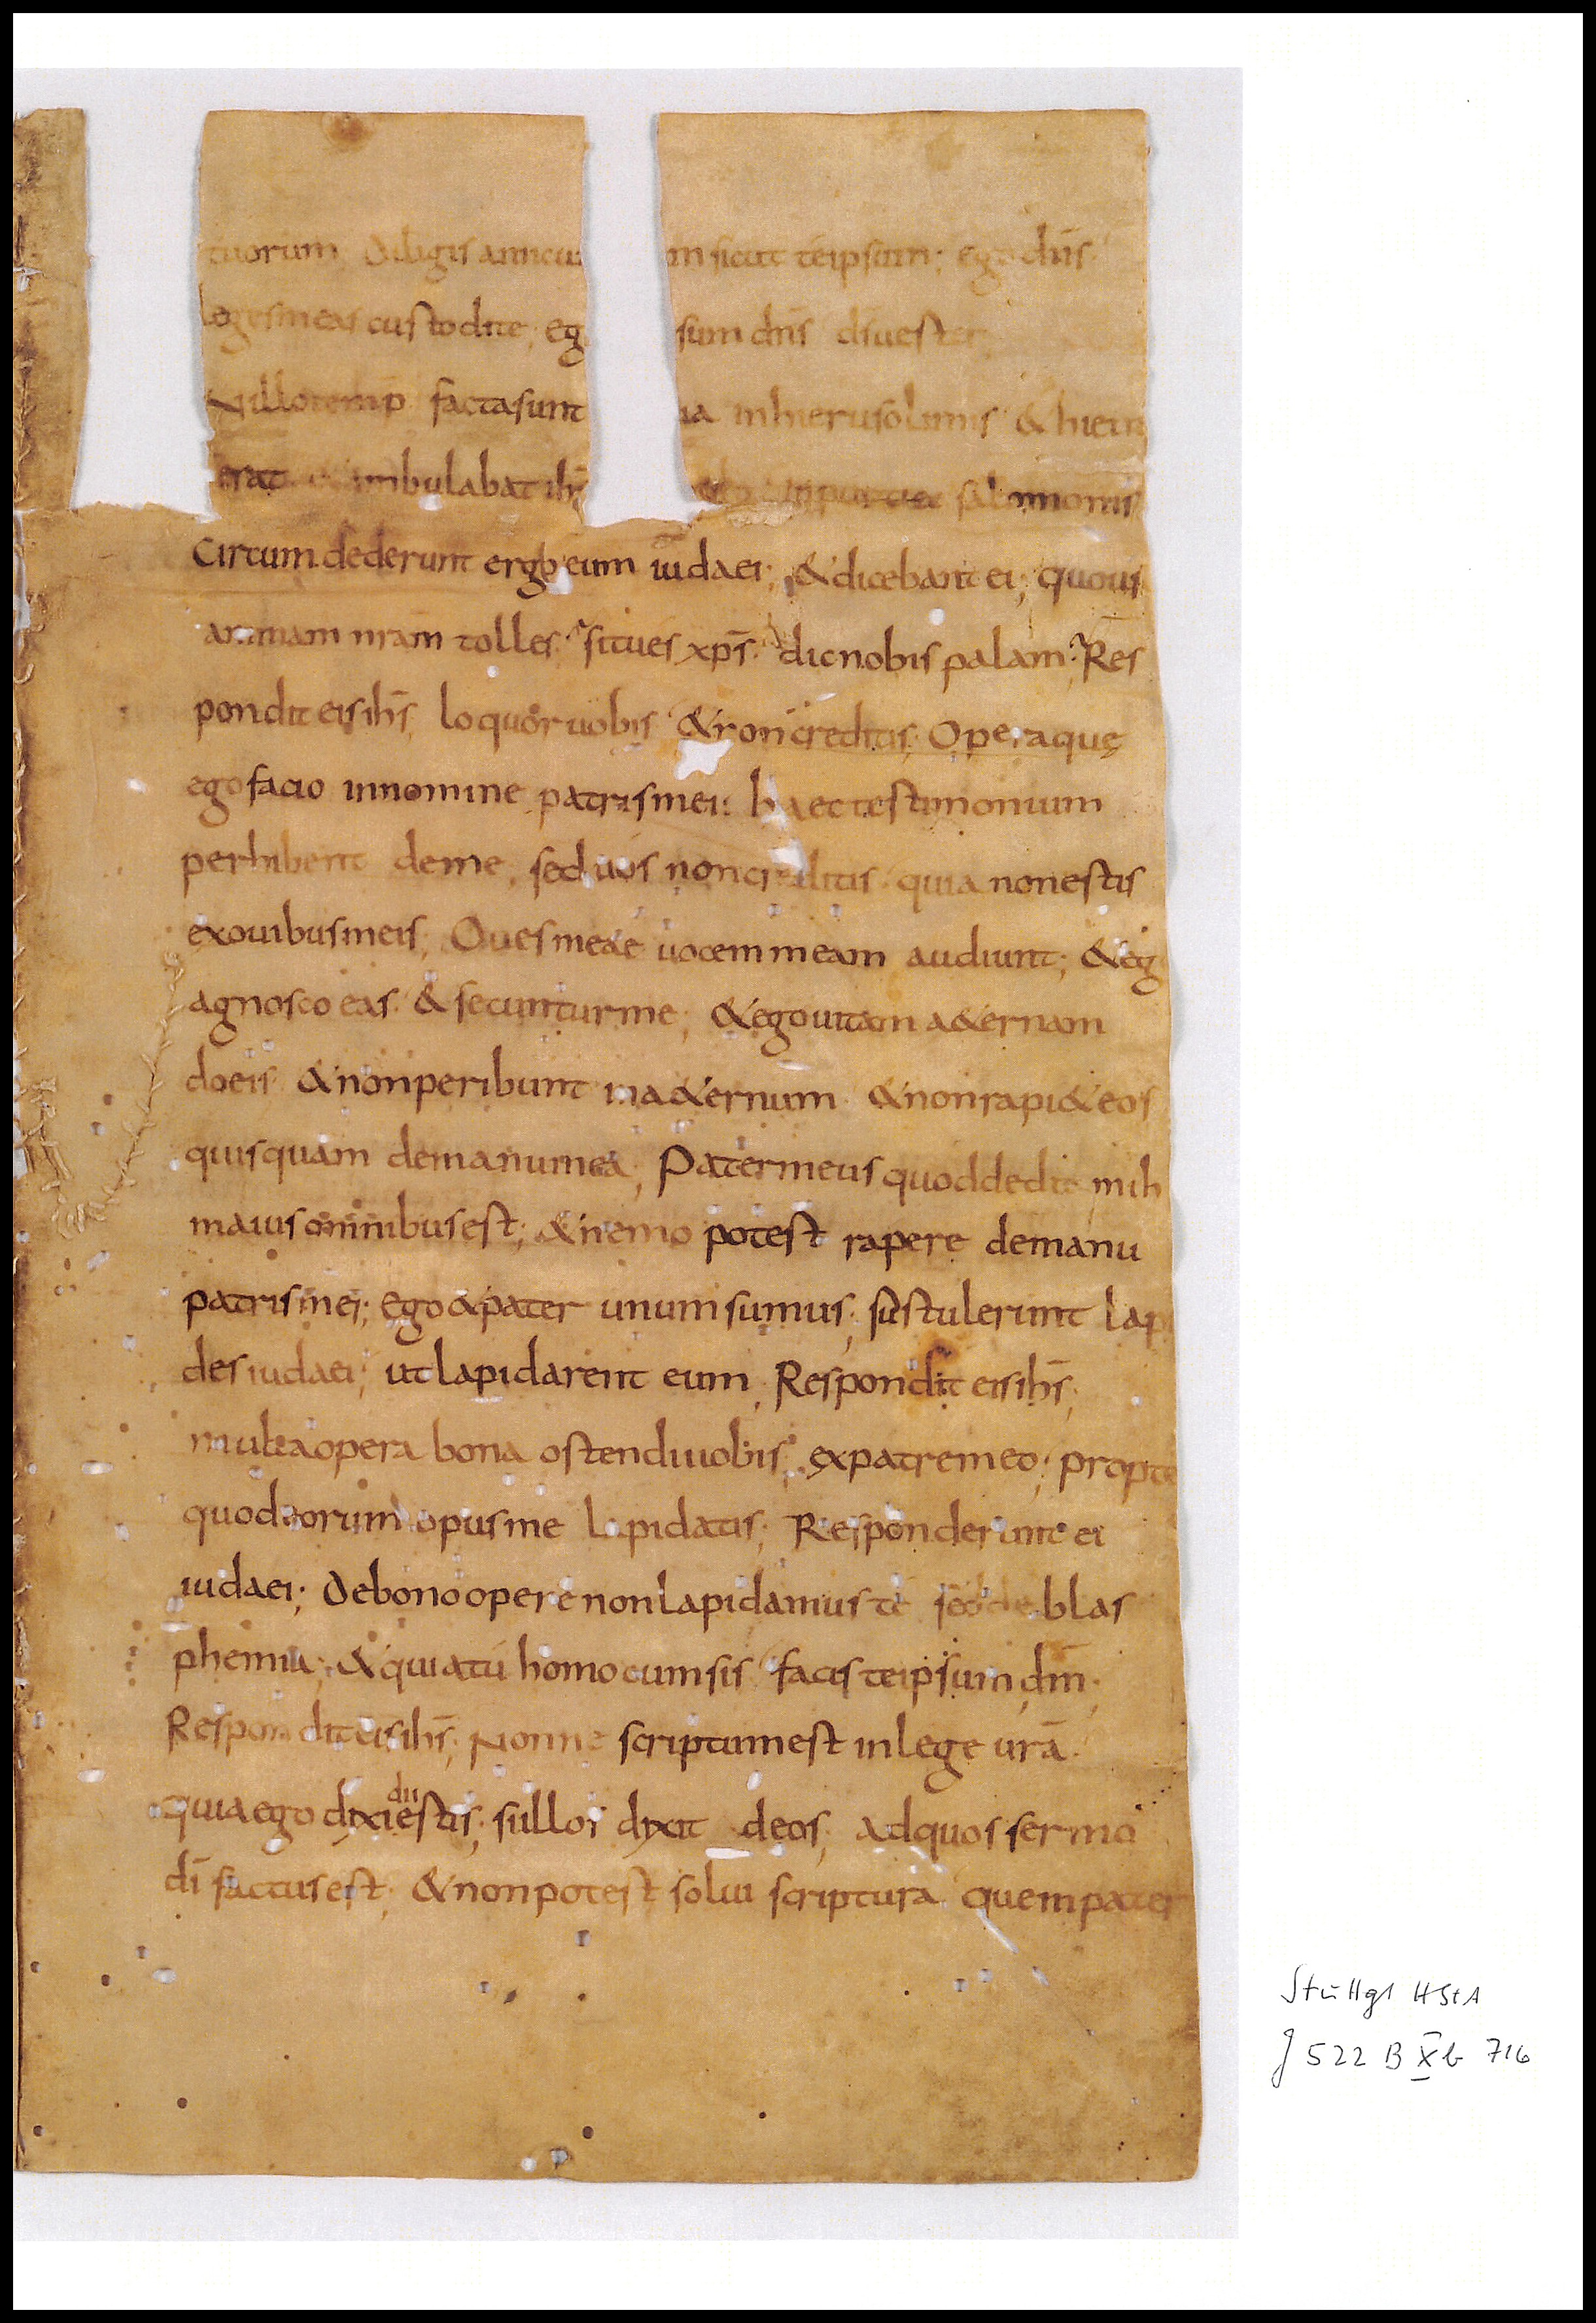 tuorum diligis amicu m sicut teipsum; ego dn̄s
legesmeas custodite; eg sum dn̄s d̄s uester
&illotemp̄ factasunt ia inhierusolimis & hiem
erat ambulabat ih̄s inporticu salomonis
Circumdederunt ergo eum iudaei; &dicebant ei; quous
animam nr̄am tolles; situes xp̄s. dicnobis palam; Res
pondit eis ih̄s; loquor uobis &non creditis; Opera quę
ego facio innomine patrismei; haec testimonium
perhibent deme, sed uos noncreditis quia nonestis
exouibusmeis; Ouesmeae uocem meam audiunt; &eg
agnosco eas & secunturme; &ego uitam a&ernam
doeis &nonperibunt ina&ernum &nonrapi&eos
quisquam demanumea; Patermeus quoddedit mih
maius omnibusest; &nemo potest rapere demanu
patrismei; ego&pater unum sumus; sustulerunt lapi
des iudaei; utlapidarent eum; Respondit eis ih̄s;
multaopera bona ostendiuobis expatremeo; propte
quodeorum opusme lapidatis; Responderunt ei
iudaei; debonoopere nonlapidamus te sed de blas
phemia; &quiatu homo cumsis facis teipsum dm̄;
Respondit eis ih̄s; Nonne scriptumest inlege ur̄a.
quiaego dixi dii estis; sillos dixit deos; adquos sermo
dī factusest; &nonpotest solui scriptura quem pater
Stuttgt HStA
J 522 B X b 716